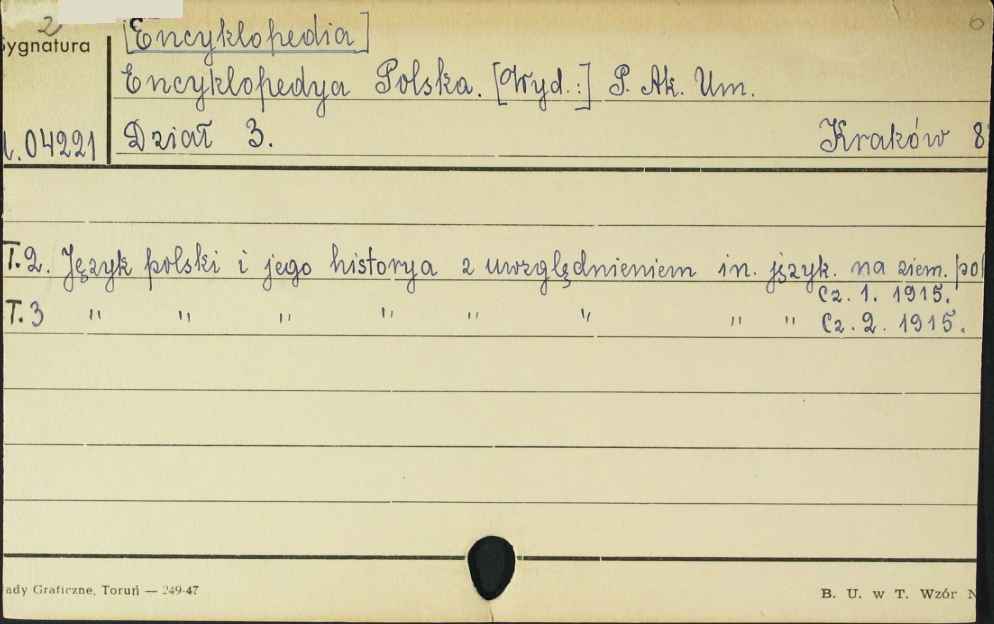 2
Sygnatura
[Encyklopedia]
Encyklopedya Polska. [Wyd.:] P. Ak. Um.
04221
Dział 3. Kraków 8
T.2. Język polski i jego historya z uwzględnieniem in. język. na ziem. pol
Cz. 1. 1915.
T.3 " " " " " " " " Cz. 2. 1915.
ady Graficzne, Toruń — 249-47
B. U. w T. Wzór N